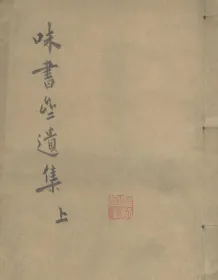 味書㘴遺集
上